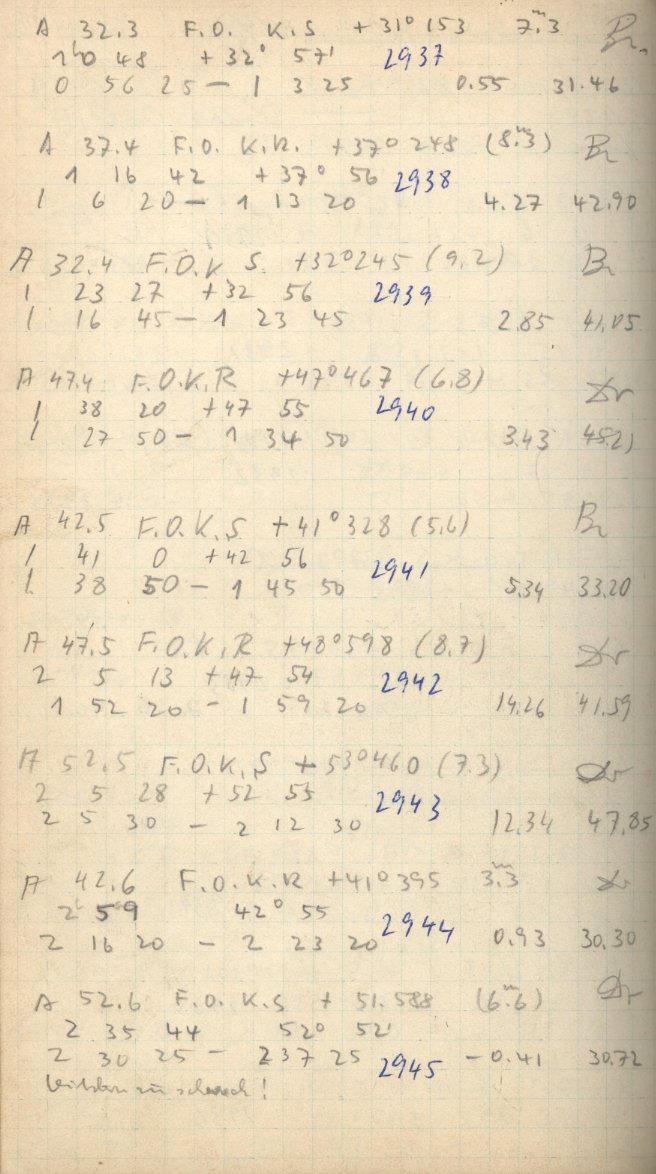 A 32.3 F.O. K.S +31° 153 7.ᵐ3 Br.
1ʰ0 48 +32° 57' 2937
0 56 25 – 1 3 25 0.55 31.46
A 37.4 F.O. K.R. +37° 248 (8.ᵐ3) Br
1 16 42 +37° 56 2938
1 6 20 – 1 13 20 4.27 42.90
A 32.4 F.O.K S. +32°245 (9,2) Br
1 23 27 +32 56 2939
1 16 45 – 1 23 45 2.85 41.05
A 47.4 F.O.K.R +47°467 (6,8) Dr
1 38 20 +47 55 2940
1 27 50 – 1 34 50 3.43 45.21
A 42.5 F.O.K.S +41°328 (5,6) Br
1 41 0 +42 56 2941
1 38 50 – 1 45 50 5.34 33.20
A 47.5 F.O.K.R +48°598 (8,7) Dr
2 5 13 +47 54 2942
1 52 20 – 1 59 20 14.26 41.59
A 52.5 F.O.K.S +53°460 (7.3) Dr
2 5 28 +52 55 2943
2 5 30 – 2 12 30 12.34 47.85
A 42.6 F.O.K.R +41°395 3.ᵐ3 Dr
2ʰ 59 42° 55 2944
2 16 20 – 2 23 20 0.93 30.30
A 52.6 F.O. K.S + 51.588 (6.ᵐ6) Dr
2 35 44 52° 52'
2 30 25 – 2 37 25 2945 –0.41 30.72
zu schwach!